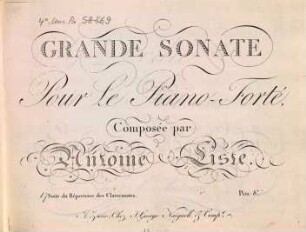 GRANDE SONATE
Pour Le Piano-Forté.
Composée par
Antoine Liste.
Suite du Répertoire des Clavecinistes.
Prix 6
Chez J. George Naigueli & Comp.